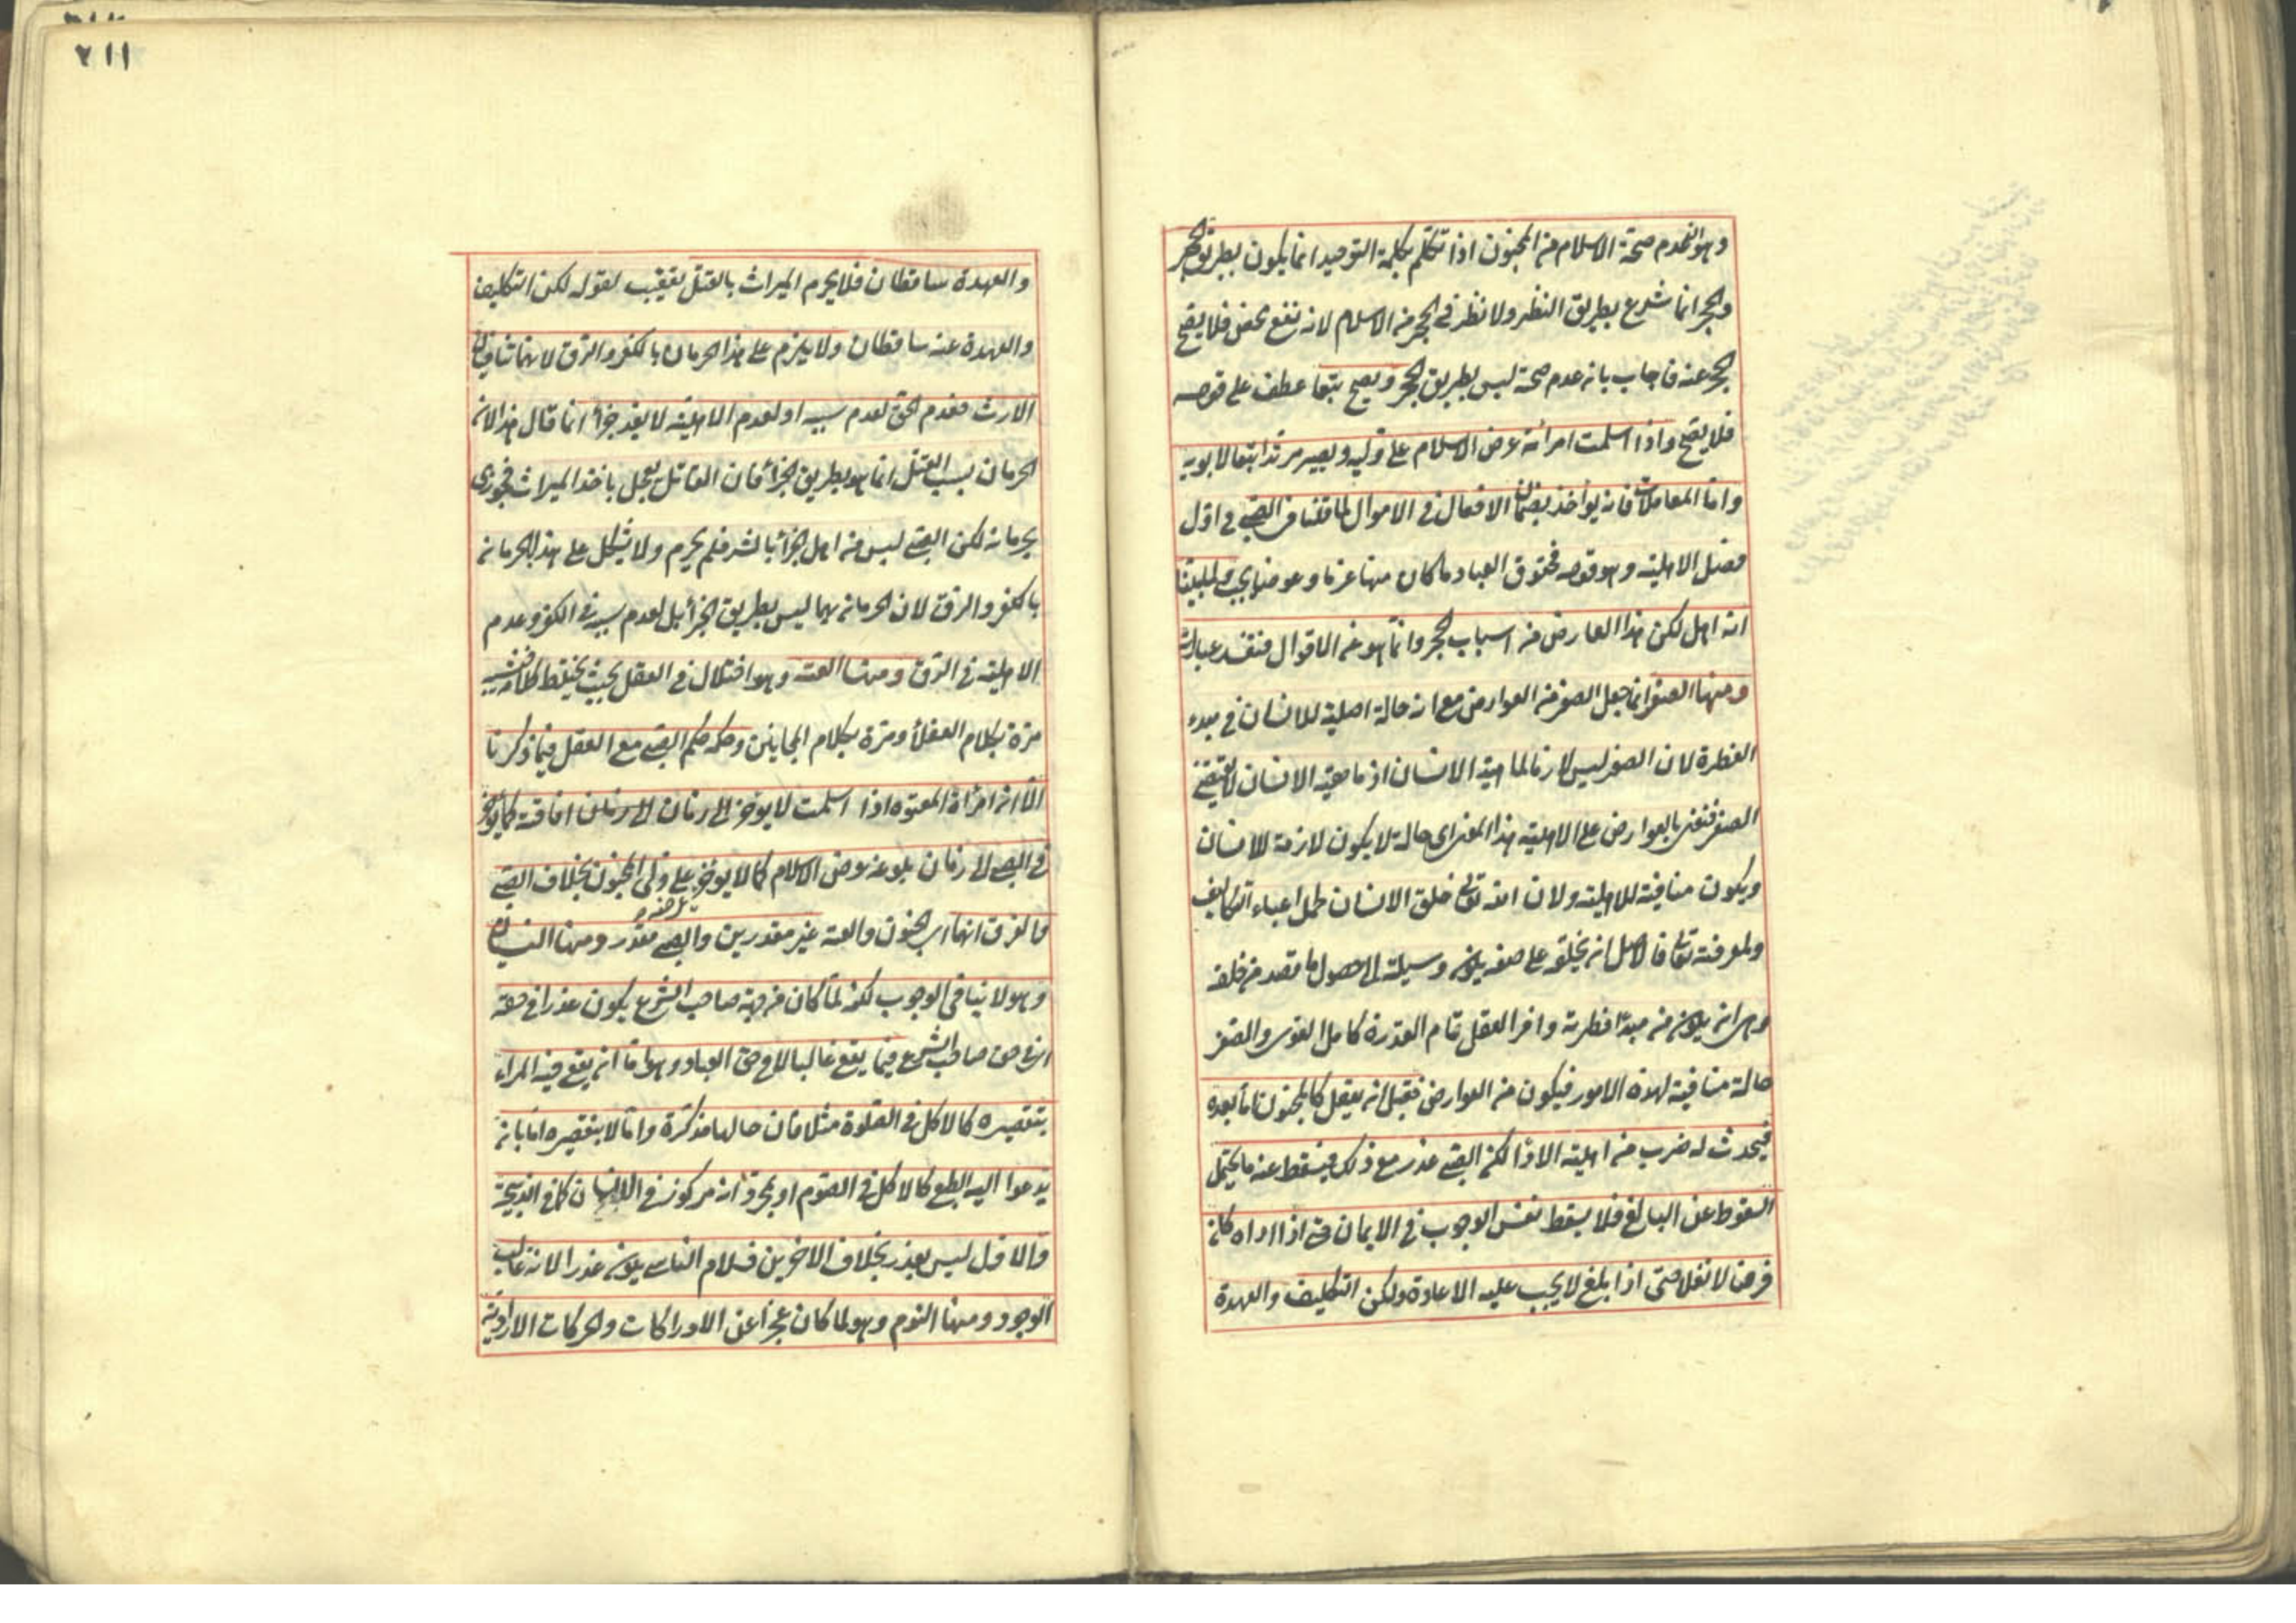 وهو ان عدم صحة الاسلام من المجنون اذا تكلم بكلمة التوحيد انما يكون بطريق الحجر
والحجر انما شرع بطريق النظر ولا نظر في الحجر من الاسلام لانه نفع محض فلا يصح
الحجر عنه فاجاب بانه عدم صحته ليس بطريق الحجر ويصح تبعا عطف على قوله
فلا يصح واذا اسلمت امرأته عرض الاسلام على وليه ويصير مرتدا تبعا لابويه
واما المعاملات فانه يؤاخذ بضمان الافعال في الاموال لما قلنا في الصبي في اول
فصل الاهلية وهو قوله فحقوق العباد ما كان منها غرما وعوضا يجب ولما بينا
انه اهل لكن هذا العارض من اسباب الحجر وانما هو عن الاقوال فتفسد عباراته
ومنها الصغر انما جعل الصغر من العوارض مع انه حالة اصلية للانسان في مبدء
الفطرة لان الصغر ليس لازما لماهية الانسان اذ ماهية الانسان لا تقتضي
الصغر فنعني بالعوارض على الاهلية هذا المعنى اى حالة لا يكون لازمة للانسان
ويكون منافية للاهلية ولان الله تعالى خلق الانسان لحمل اعباء التكاليف
ولمعرفته تعالى فالاصل ان يخلقه على صفة يكون وسيلة الى حصول ما قصد من خلقه
وهي ان يكون من مبدأ فطرته وافر العقل تام القدرة كامل القوى والصغر
حالة منافية لهذه الامور فيكون من العوارض فقبل ان يعقل كالمجنون اما بعده
فيحدث له ضرب من اهلية الادا لكن الصبى عذر مع ذلك فيسقط عنه ما يحتمل
السقوط عن البالغ فلا يسقط نفس الوجوب في الايمان حتى اذا اداه كان
فرضا لا نفلا حتى اذا بلغ لا يجب عليه الاعادة ولكن التكليف والعهدة
٢١١
والعهدة ساقطان فلا يحرم الميراث بالقتل تعقيب لقوله لكن التكليف
والعهدة عنه ساقطان ولا يلزم على هذا الحرمان بالكفر والرق لانهما ينافيان
الارث فعدم الحق لعدم سببه او لعدم الاهلية لا يعد جزأ انما قال هذا لان
الحرمان بسبب القتل انما هو بطريق الجزأ فان القاتل يعجل باخذ الميراث فجوزى
بحرمانه لكن الصبى ليس من اهل الجزأ بالشر فلم يحرم ولا يشكل على هذا الحرمانه
بالكفر والرق لان الحرمانه بهما ليس بطريق الجزأ بل لعدم سببه في الكفر وعدم
الاهلية في الرق ومنها العته وهو اختلال في العقل بحيث يختلط كلامه فيشبه
مرة بكلام العقلأ ومرة بكلام المجانين وحكمه حكم الصبى مع العقل فيما ذكرنا
الا ان امرأة المعتوه اذا اسلمت لا يؤخر الى زمان الى زمان افاقته كما يؤخر
في الصبى الى زمان بلوغه عرض الاسلام كما لا يؤخر عرضه على ولى المجنون بخلاف الصبى
والفرق انهما اى الجنون والعته غير مقدرين والصبى مقدر ومنها النسيان
وهو لا ينافى الوجوب لكنه لما كان من جهة صاحب الشرع يكون عذرا في حقه
اى في حق صاحب الشرع فيما يقع غالبا لا في حق العباد وهو اما ان يقع فيه المراء
بتقصيره كالاكل في الصلوة مثلا فان حالها مذكرة واما لا بتقصيره اما بان
يدعوا اليه الطبع كالاكل في الصوم او بمجرد انه مركوز في الانسان كما في الذبيحة
والاول ليس بعذر بخلاف الاخرين فسلام الناسى يكون عذرا لانه غالب
الوجود ومنها النوم وهو لما كان عجزا عن الادراكات والحركات الارادية